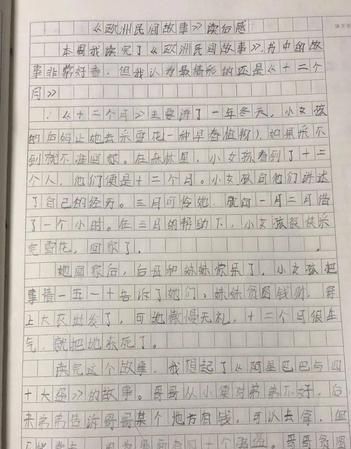 《欧洲民间故事》读后感
本周我读完了《欧洲民间故事》，书中的故
事非常好看，但我认为最精彩的还是《十二个
月》
《十二个月》主要讲了一年冬天，小女孩
的后妈让她去采雪花一种早春植物），如果采不
到就不准回家。在森林里，小女孩看到了十二
个人，他们便是十二个月。小女孩向他们讲述
了自己的经历。三月可怜她，就向一月二月借
了一个小时。在三月的帮助下，小女孩很快采
完雪花，回家了。
她回家后，后母和妹妹惊呆了，小女孩把
事情一五一十告诉了她们，妹妹贪图钱财，穿
上大衣出发了，可她傲慢无礼，十二个月很生
气，就把她冻死了。
读完这个故事，我想起了《阿里巴巴与四
十大盗》的故事。哥哥从小就对弟弟不好，后
来弟弟告诉哥哥某个地方有钱，可以去拿，但
哥哥贪图